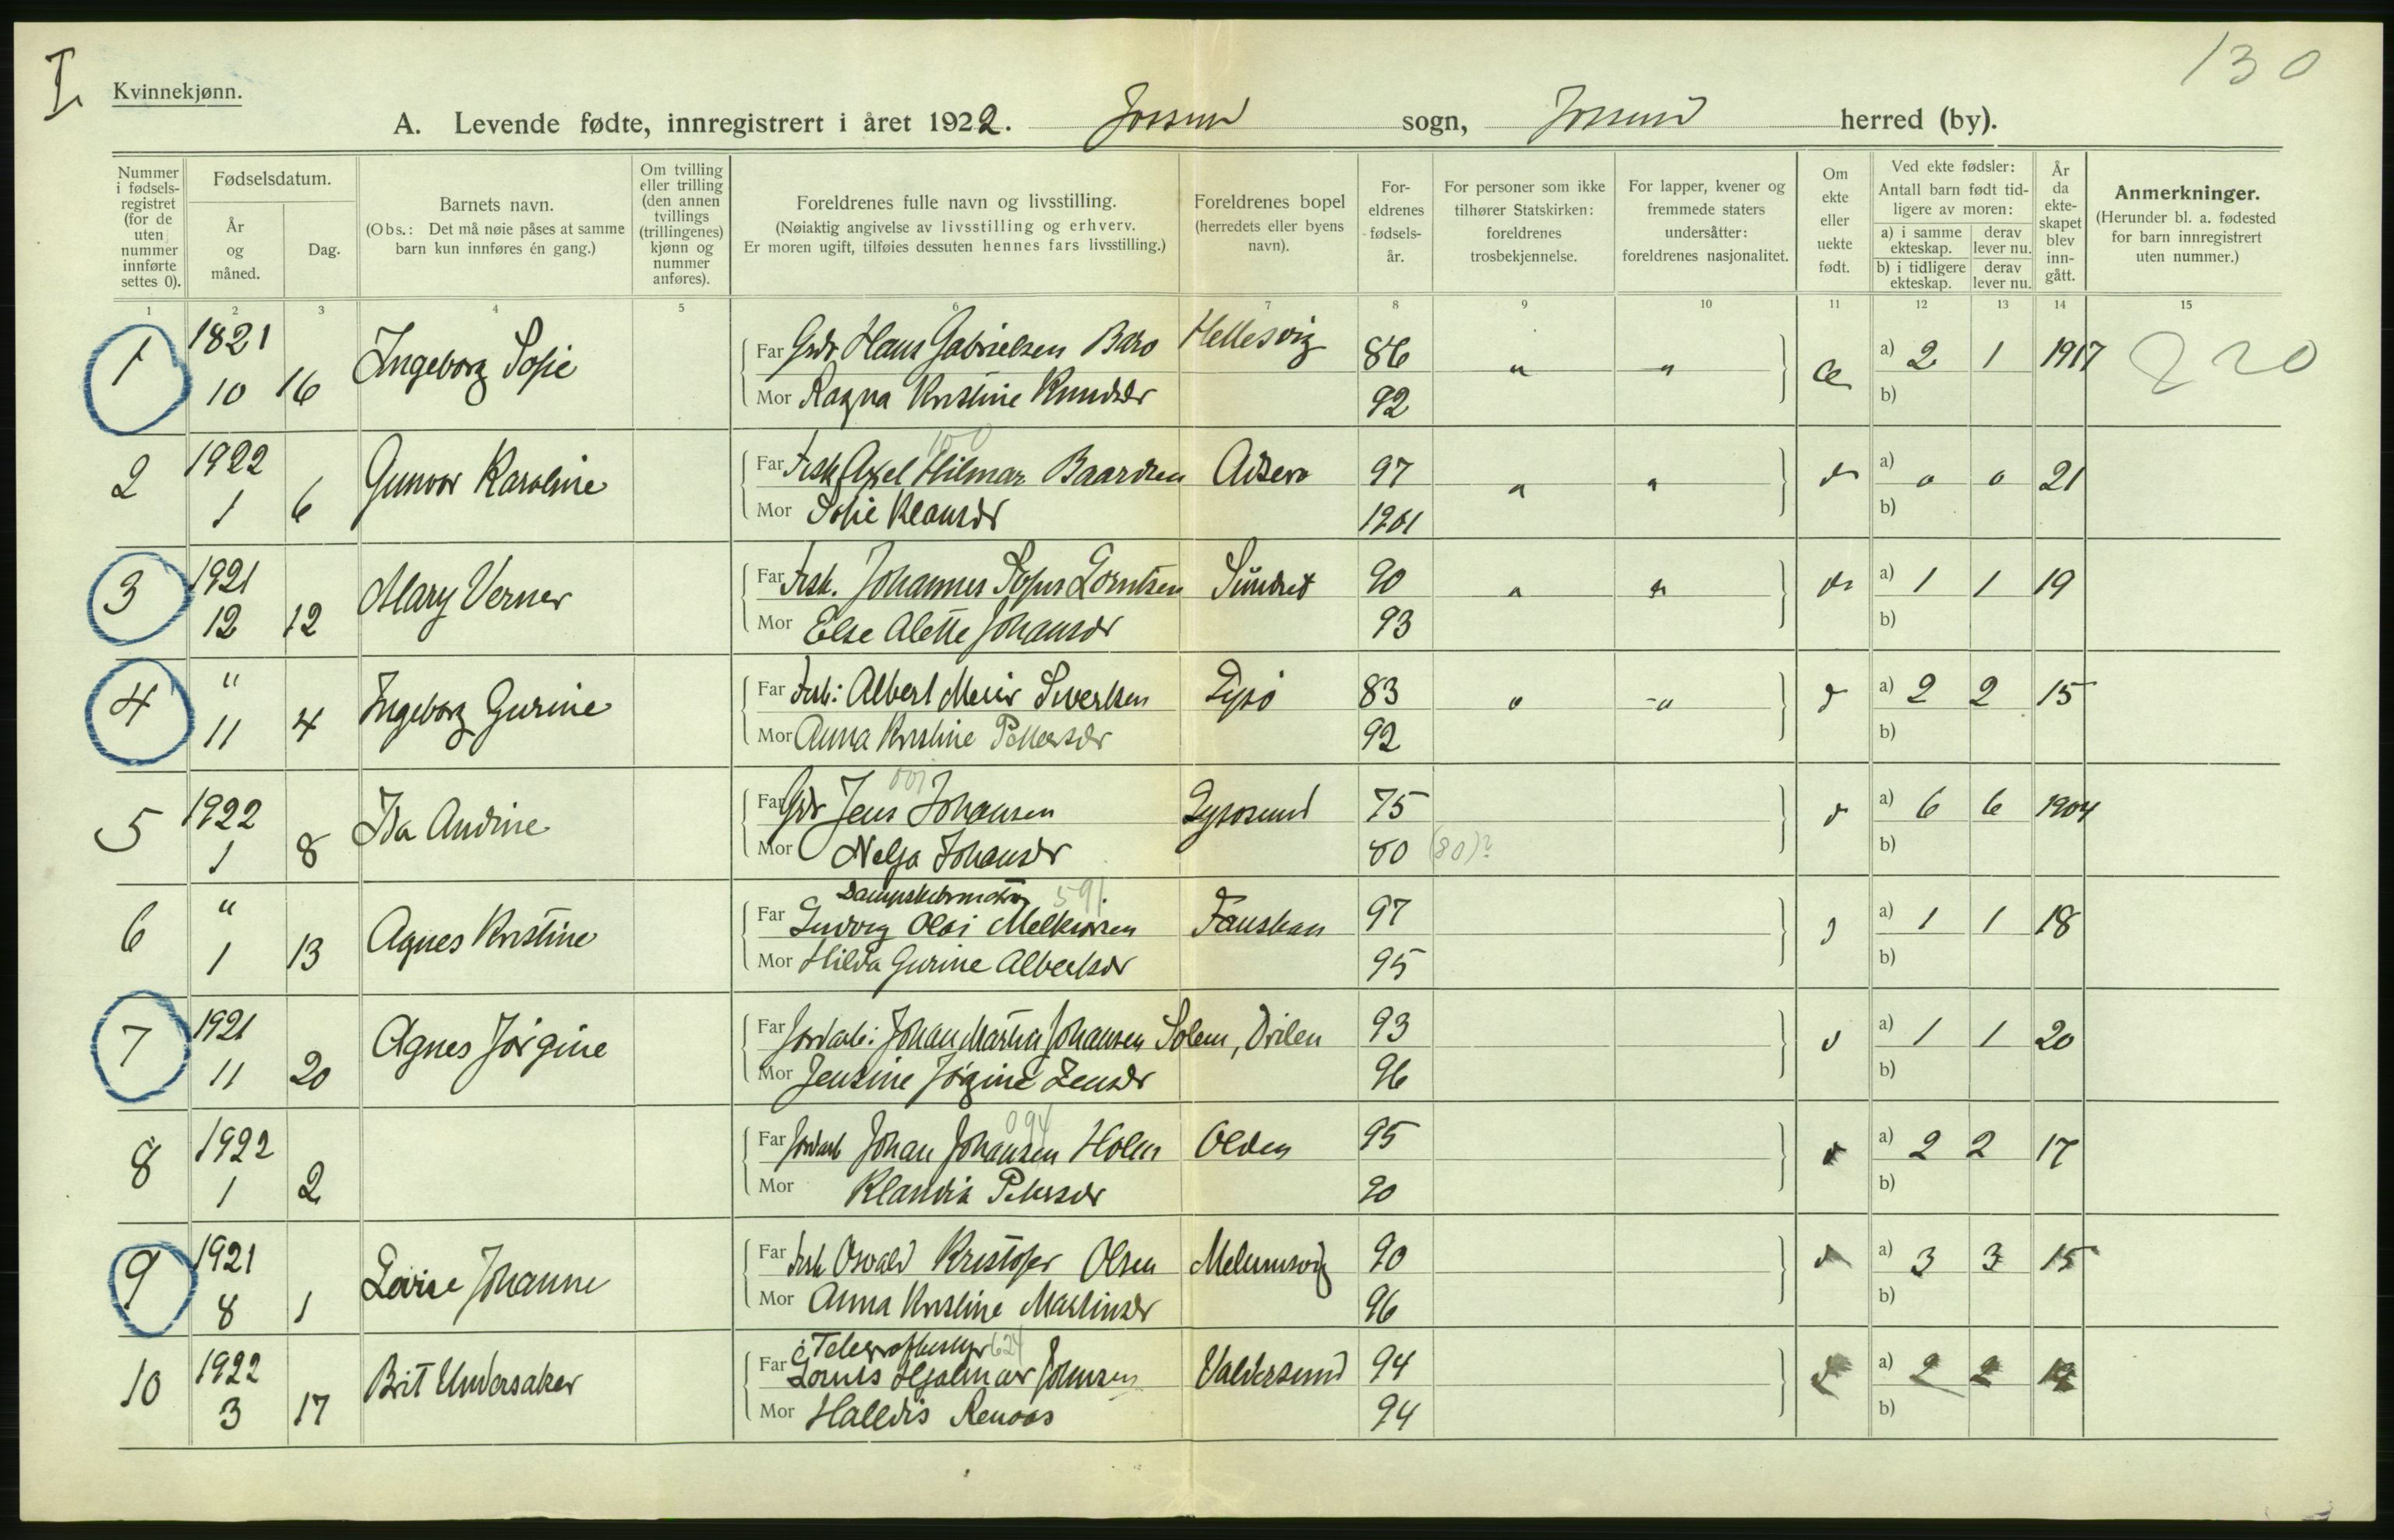 I
130
Kvinnekjønn.
A. Levende fødte, innregistrert i året 1922. Jossund sogn, Jossund herred (by).
Nummer i fødsels-registret (for de uten nummer innførte settes 0).
Fødselsdatum.
År og måned.
Dag.
Barnets navn.
(Obs.: Det må nøie påses at samme barn kun innføres én gang.)
Om tvilling eller trilling (den annen tvillings (trillingenes) kjønn og nummer anføres).
Foreldrenes fulle navn og livsstilling.
(Nøiaktig angivelse av livsstilling og erhverv.
Er moren ugift, tilføies dessuten hennes fars livsstilling.)
Foreldrenes bopel (herredets eller byens navn).
For-eldrenes fødsels-år.
For personer som ikke tilhører Statskirken: foreldrenes trosbekjennelse.
For lapper, kvener og fremmede staters undersåtter: foreldrenes nasjonalitet.
Om ekte eller uekte født.
Ved ekte fødsler:
Antall barn født tid-ligere av moren:
a) i samme ekteskap.
derav lever nu.
b) i tidligere ekteskap.
derav lever nu.
År da ekte-skapet blev inn-gått.
Anmerkninger.
(Herunder bl. a. fødested for barn innregistrert uten nummer.)
1 2 3 4 5 6 7 8 9 10 11 12 13 14 15
1 1821 10 16 Ingeborg Sofie Far Gbr Hans Gabrielsen Hellesvig 86 " " a) 2 1 1917 220
Mor Ragna Kristine Knudsdr 92 b)
2 1922 1 6 Gunvor Karoline 100 Far Fisk Axel Hilmar Baardsen 97 " " a) 0 0 21
Mor Sofie Klausdr 1901 b)
3 1921 12 12 Mary Verner Far Fisk. Johannes Sofus Lorntsen Sundet 90 " " a) 1 1 19
Mor Else Alette Johansdr 93 b)
4 " 11 4 Ingeborg Gurine Far Fisk: Albert Meier Sivertsen Lysø 83 " " a) 2 2 15
Mor Anna Kristine Pettersdr 92 b)
5 1922 1 8 Ida Andine 001 Far Gbr Jens Johansen Lysøsund 75 a) 6 6 1904
Mor Johansdr 80 (80)? b)
6 " 1 13 Agnes Kristine 591 Far Ludvig Olai Melkiorsen 97 a) 1 1 18
Mor Hilda Gurine Albertsdr 95 b)
7 1921 11 20 Agnes Jørgine Far Jordarb: Johan Martin Johansen Solem, 93 a) 1 1 20
Mor Jensine Jørgine Jensdr 96 b)
8 1922 1 2 094 Far Jordarb Johan Johansen Holm Olden 95 a) 2 2 17
Mor Klaudia Petersdr 90 b)
9 1921 8 1 Lovise Johanne Far Fisk Osvald Kristofer Olsen 90 a) 3 3 15
Mor Anna Kristine Martinsdr 96 b)
10 1922 3 17 Brit Undersaker Telegrafbestyr 624
Far Hjalmar Johnsen Valdersund 94 a) 2 2
Mor Halldis Renaas 94 b)